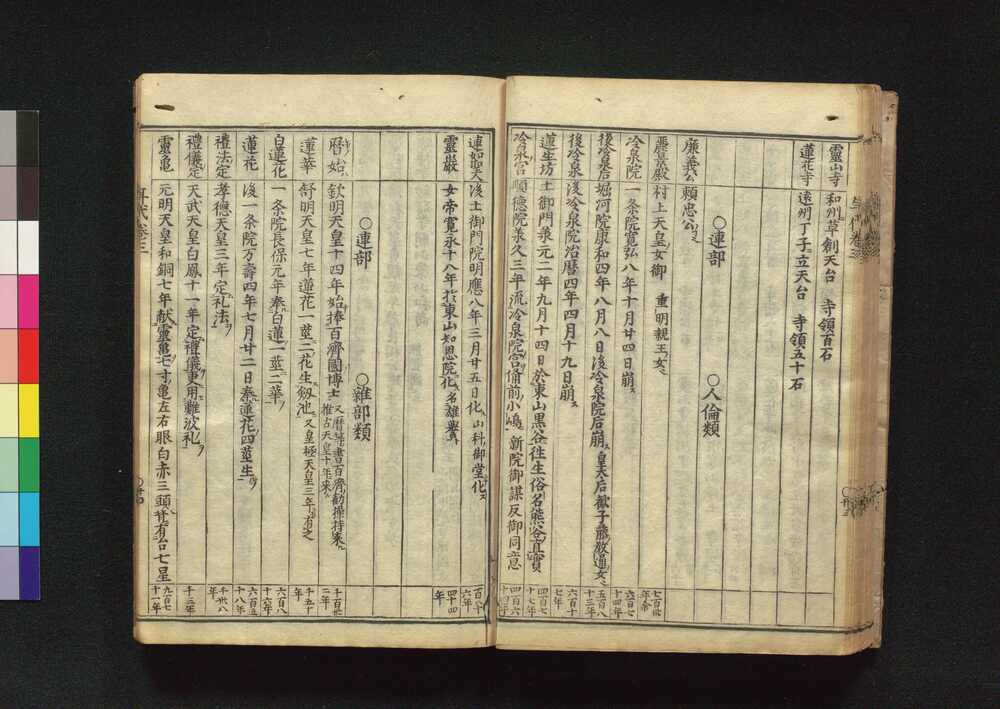 靈山寺 和州草創天台 寺領百石
蓮花寺 遠州丁子立天台 寺領五十石
○連部 ○人倫類
廉義公 頼忠公
麗景殿 村上天皇女御 重明親王女
冷泉院 一条院寛弘八年十月廿四日崩 六百七十四年
後冷泉后 堀河院康和四年八月八日後冷泉院后崩 皇太后歓子藤教通女 五百八十三年
後冷泉 後冷泉院治暦四年四月十九日崩 六百十七年
蓮生坊 土御門 元二年九月十四日於東山黒谷往生俗名熊谷直實 四百七十七年
冷泉宮 順徳院 久三年流冷泉院宮備前小嶋 新院御謀反御同意
連如聖人 後土御門院明應八年三月廿五日化 山科御堂化 百八十六年
靈巖 女帝寛永十八年於東山知恩院化 名雄誉 四十四年
○連部 ○雜部類
暦始 欽明天皇十四年始捧百濟國博士 又暦等書百濟勧操持来 推古天皇十年来 千百卅二年
蓮華 舒明天皇七年蓮花一莖二花生釼池 又皇極天皇三年有之 千五十年
白蓮花 一条院長保元年奉白蓮一莖二華 六百八十六年
蓮花 後一条院万壽四年七月廿二日奉蓮花四莖生 六百五十八年
禮法定 孝徳天皇三年定礼法 千卅八年
禮儀定 天武天皇白鳳十一年定禮儀更用難波礼 千三年
靈亀 元明天皇和銅七年献靈亀七寸亀左右眼白赤三頭 有 七星 九百七十一年
年代巻三